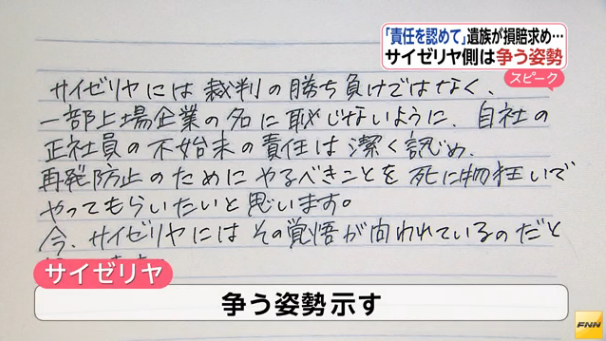 「責任を認めて」遺族が損賠求め…
サイゼリヤ側は争う姿勢
スピーク
サイゼリヤには裁判の勝ち負けではなく、
一部上場企業の名に恥じないように、自社の
正社員の不始末の責任は潔く認め、
再発防止のためにやるべきことを死に物狂いで
やってもらいたいと思います。
今、サイゼリヤにはその覚悟が問われているのだと
サイゼリヤ
争う姿勢示す
FNN